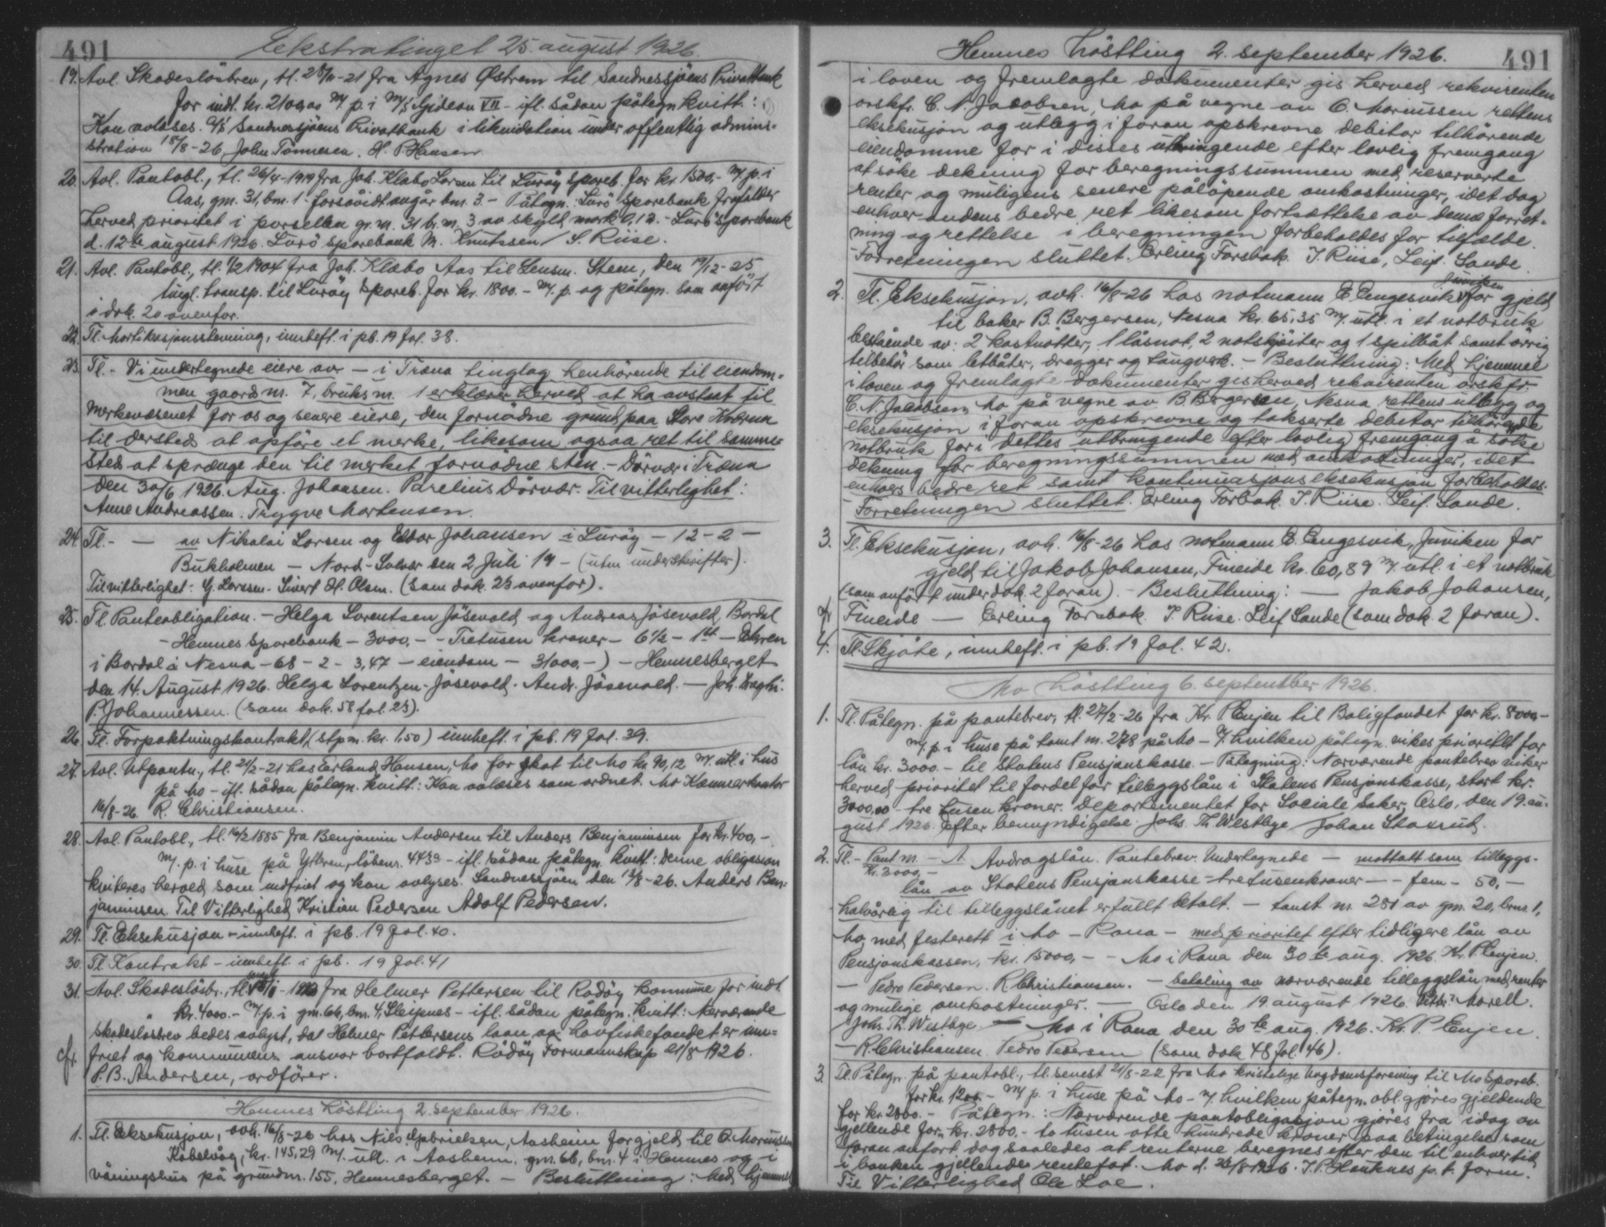 491
Ekstratinget 25 august 1926
19. Avl. Skadeslösbrev, tl. 28/11-21 fra Agnes Østrem til Sandnessjöens Privatbank
for indt. kr. 21000,00 m/ p. i m/k Gideon VII - ifl. sådan påtegn. kvitt:
Kan avlöses. A/S Sandnessjöens Privatbank i likvidation under offentlig admini-
stration 18/8-26, John Tönnesen. H. P. Hansen
20. Avl. Pantobl., tl. 26/4-1919 fra Joh. Klæbo Lorsen til Luröy Spareb. for kr. 1500,- m/ p. i
Aas, gm. 31, bm. 1. forsåvidt angår bm. 3. - Påtegn. Lurö Sparebank frafalder
herved prioritet i parsellen gr. m. 31 br. m. 3 av skyld mark 0,13. - Lurö Sparebank
d. 12te august 1926. Lurö Sparebank M. Knutssen / S. Riise.
21. Avl. Pantobl., tl. 1/2 1904 fra Joh. Klæbo Aas til Lensm. Steen, den 19/12-25
tingl. transp. til Luröy Spareb. for kr. 1800.- m/ p. og påtegn. som anfört
i dok. 20 ovenfor.
22. Tl. Mortifikasjonsstevning, innheft. i pb. 19 fol. 38.
23. Tl. - Vi undertegnede eiere av - i Træna tinglag henhörende til eiendom-
men gaards nr. 7, bruks nr. 1 erklærer herved at ha avstaat til
Merkevæsenet for os og senere eiere, den fornödne grund paa Store
til dersteds at opföre et merke, likesom ogsaa ret til samme-
steds at sprænge den til merket fornödne sten. - Dörvær i Træna
den 30/6 1926. Aug. Johansen. Parelius Dörvær. Til vitterlighet:
Anne Andreassen. Trygve Mortensen.
24. Tl. - - av Nikolai Larsen og Edvor Johansen i Luröy - 12 - 2 -
Bukholmen - Nord-Solvær den 2 Juli 19 - (uten underskrifter).
Til vitterlighet: G. Lorssen. Sivert H. Olsen. (som dok. 23 ovenfor).
25. Tl. Panteobligation. - Helga Lorentsen Jösevold og Andreas Jösevold, Bordal
- Hemnes Sparebank - 3000,- - Tretusen kroner - 6 1/2 - 1st -
i Bardal i Nesna - 68 - 2 - 3,47 - eiendom - 31000.-) - Hemnesberget
den 14. August 1926. Helga Lorentzen-Jösevold. Andr. Jösevold. - Joh.
P. Johannessen. (som dok. 58 fol. 23).
26. Tl. Forpaktningskontrakt, (stpm. kr. 1,50) innheft. i pb. 19 fol. 39.
27. Avl. Utpantn., tl. 21/2-21 hos Erland Hansen, Mo for skat til Mo kr. 90,12 m/ utl. i hus
på Mo - ifl. sådan påtegn. kvitt: Kan avlöses som ordnet. Mo Kæmnerkontor
16/8-26 R. Christiansen.
28. Avl. Pantobl., tl. 16/2 1885 fra Benjamin Andersen til Anders Benjaminsen for kr. 400,-
m/ p. i huse på Ytteren, löbenr. 443a - ifl. sådan påtegn. kvitt: denne obligasjon
kviteres herved som indfriet og kan avlyses. Sandnessjöen den 13/8-26. Anders Ben-
jaminsen. Til Vitterlighed Kristian Pedersen Adolf Pedersen.
29. Tl. Eksekusjon - innheft. i pb. 19 fol. 40.
30. Tl. Kontrakt - innheft. i pb. 19 fol. 41
31. Avl. Skadeslösbr., fra Helmer Pettersen til Rödöy kommune for indt
kr. 4000.- m/ p. i gm. 66, bm. 4, Sleipnes - ifl. sådan påtegn. kvitt: Nærværende
skadeslösbrev bedes avlyst, da Helmer Pettersens laan av havfiskefondet er inn-
friet og kommunens ansvar bortfaldt. Rödöy Formannskap 21/8 1926.
P. B. Andersen, ordförer.
Hemnes höstting 2. september 1926.
1. Tl. Eksekusjon, avh. 16/8-26 hos Nils Gabrielsen, Aasheim for gjeld til C. Mariussen
Kobelvåg, kr. 145,29 m/ utl. i Aasheim, gm. 66, bm. 4 i Hemnes og i
våningshus på grundm. 155, Hemnesberget. - Besluttning: Med hjemmel
Hemnes höstting 2. september 1926.
491
i loven og fremlagte dokumenter gis herved rekvirenten
orskfr. C. N. Jacobsen, Mo på vegne av C. Mariussen rettens
eksekusjon og utlegg i foran opskrevne debitor tilhörende
eiendomme for i disses utbringende efter lovlig fremgang
at söke dekning for beregningssummen med reserverte
renter og muligens senere pålöpende omkostninger, idet dog
enhver andens bedre ret likesom fortsættelse av denne forret-
ning og rettelse i beregningen forbeholdes for tilfælde.
- Forretningen sluttet. Erling Forsbak. I. Riise, Leif Sande.
2. Tl. Eksekusjon, avh. 16/8-26 hos notmann E. Engesvik, Juviken for gjeld
til baker B. Bergersen, Nesna kr. 65,35 m/ utl. i et notbruk
bestående av: 2 kastnötter, 1 låsnot, 2 notskjöiter og 1 spilbåt samt övrig
tilbehör som letbåter, dregger og taugverk. - Besluttning: Med hjemmel
i loven og fremlagte dokumenter gis herved rekvirenten orskfr.
C. N. Jacobsen, Mo på vegne av B. Bergersen, Nesna rettens utlegg og
eksekusjon i foran opskrevne og takserte debitor tilhörende
notbruk for i dettes utbringende efter lovlig fremgang å söke
dekning for beregningssummen med omkostninger, idet
enhvers bedre ret samt kontinuasjonseksekusjon forbeholdes.
- Forretningen sluttet. Erling Forsbak. I. Riise. Leif Sande.
3. Tl. Eksekusjon, avh. 16/8-26 hos notmann E. Engesvik, Juviken for
gjeld til Jakob Johansen, Fineide kr. 60,89 m/ utl. i et notbruk
(som anfört under dok. 2 foran). - Besluttning: - Jakob Johansen,
Fineide - Erling Forsbak. I. Riise. Leif Sande (som dok. 2 foran).
4. Tl. Skjöte, innheft. i pb. 19 fol. 42.
Mo höstting 6. september 1926.
1. Tl. Påtegn. på pantebrev, tl. 27/2-26 fra Kr. P. Enjen til Boligfondet for kr. 8000,-
m/ p. i huse på tomt nr. 278 på Mo - I hvilken påtegn. vikes prioritet for
lån kr. 3000.- til Statens Pensjonskasse. - Påtegning: Nærværende pantebrev viker
herved prioritet til fordel for tilleggslån i Statens Pensjonskasse, stort kr.
3000,00 tre tusen kroner. Departementet for Sociale Saker, Oslo, den 19. au-
gust 1926. Efter bemyndigelse. Johs. Th. Westbye Johan Stoxrud.
2. Tl. - Pant m. - A Avdragslån. Pantebrev. Undertegnede - mottatt som tilleggs-
kr. 3000,-
lån av Statens Pensjonskasse - tretusenkroner - - fem - 50,-
halvårlig til tilleggslånet er fullt betalt. - tomt nr. 281 av gm. 20, brns 1,
Mo, med festerett i Mo - Rana - med prioritet efter tidligere lån av
Pensjonskassen, kr. 15000, - - Mo i Rana den 30te aug. 1926. Kr. P. Enjen.
- Pedro Pedersen. R. Christiansen. - betaling av nærværende tilleggslån med renter
og mulige omkostninger. - Oslo den 19 august 1926. Morell.
Johs. Th. Westbye - Mo i Rana den 30te aug. 1926. Kr. P. Enjen.
- R. Christiansen. Pedro Pedersen (som dok. 48 fol. 46).
3. Tl. Påtegn. på pantobl., tl. senest 21/8-22 fra Mo kristelige Ungdomsforening til Mo Spareb.
for kr. 1200.- m/ p. i huse på Mo - I hvilken påtegn. obl. gjöres gjeldende
for kr. 2800.- Påtegn.: Nærværende pantobligasjon gjöres fra idag av
gjellende for kr. 2800.- to tusen otte hundrede kroner paa betingelser som
foran anfört dog saaledes at renterne beregnes efter den til enhver tid
i banken gjellende rentefot. Mo d. 23/8 1926. I. P. p. t. form.
Til Vitterlighed Ole Loe.